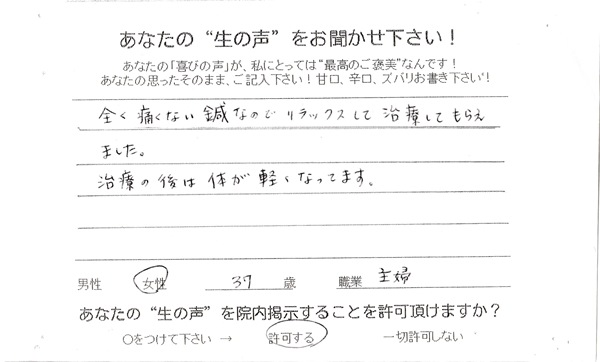 あなたの“生の声”をお聞かせ下さい！
あなたの「喜びの声」が、私にとっては“最高のご褒美”なんです！
あなたの思ったそのまま、ご記入下さい！甘口、辛口、ズバリお書き下さい！
全く痛くない鍼なのでリラックスして治療してもらえ
ました。
治療の後は体が軽くなってます。
男性　女性　37　歳　職業　主婦
あなたの“生の声”を院内掲示することを許可頂けますか？
○をつけて下さい → 許可する　一切許可しない